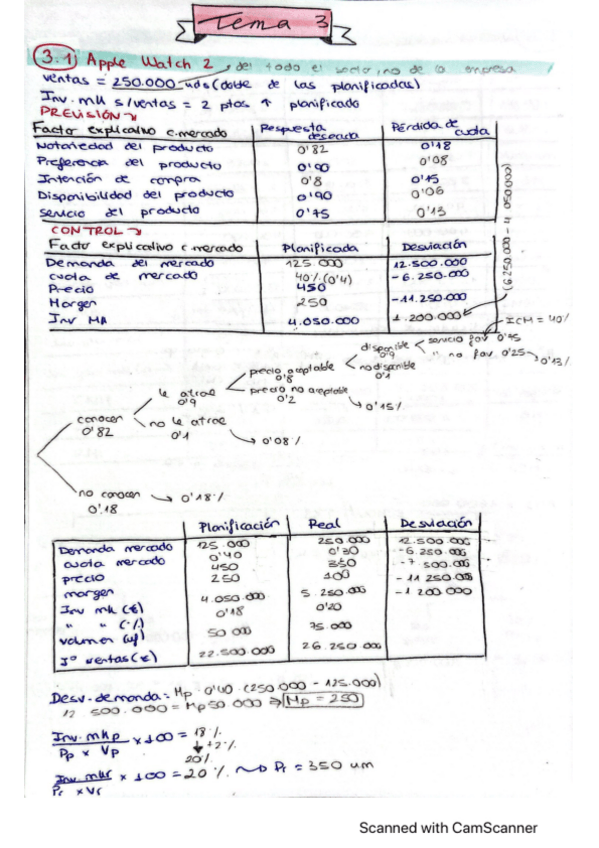 Tema 3
3.1) Apple Watch 2 → del todo el sector, no de la empresa
ventas = 250.000 uds (doble de las planificadas)
Inv. mk s/ventas = 2 ptos ↑ planificado
PREVISIÓN
Factor explicativo c.mercado | Respuesta deseada | Pérdida de cuota
Notoriedad del producto 0'82 0'18
Preferencia del producto 0'90 0'08
Intención de compra 0'8 0'15
Disponibilidad del producto 0'90 0'06
servicio del producto 0'75 0'13
CONTROL
Facto explicativo c.mercado | Planificada | Desviación
Demanda del mercado 125.000 12.500.000
cuota de mercado 40% (0'4) -6.250.000
Precio 450
Margen 250 -11.250.000
Inv MA 4.050.000 1.200.000
(5.250.000 - 4.050.000)
ICM = 40%
disponible 0'9
servicio fav 0'75
" no fav. 0'25 → 0'13%
precio aceptable 0'8
no disponible 0'1
le atrae 0'9
precio no aceptable 0'2 → 0'15%
conocen 0'82
no le atrae 0'1 → 0'08%
no conocen 0'18 → 0'18%
Planificación | Real | Desviación
Demanda mercado 125.000 250.000 12.500.000
cuota mercado 0'40 0'30 -6.250.000
precio 450 350 -7.500.000
margen 250 100 -11.250.000
Inv mk (€) 4.050.000 5.250.000 -1.200.000
" " (%) 0'18 0'20
volumen (uf) 50.000 75.000
Iº ventas (€) 22.500.000 26.250.000
Desv. demanda = Mp · 0'40 · (250.000 - 125.000)
12.500.000 = Mp 50.000 ⇒ Mp = 250
Inv. mkp / Pp x Vp x 100 = 18%
↓ +2%
20%
Inv. mkr / Pr x Vr x 100 = 20% → Pr = 350 um
Scanned with CamScanner